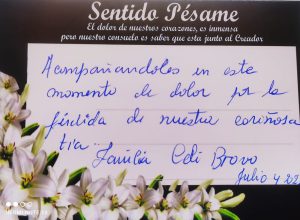 Sentido Pésame
El dolor de nuestros corazones, es inmensa
pero nuestro consuelo es saber que esta junto al Creador
Acompañandoles en este
momento de dolor por la
pérdida de nuestra cariñosa
tía.. Familia Celi Bravo
Julio 4